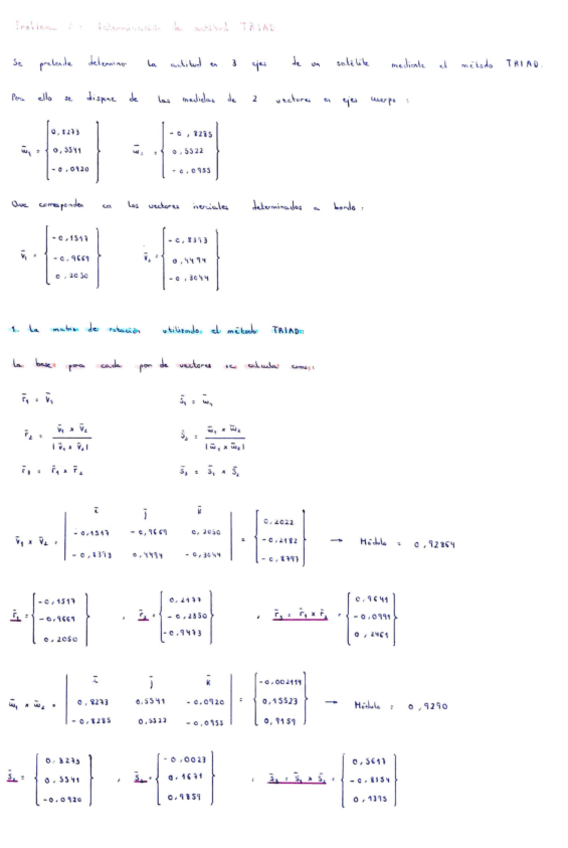 Problema : Determinación de actitud TRIAD
Se pretende determinar la actitud en 3 ejes de un satélite mediante el método TRIAD.
Para ello se dispone de las medidas de 2 vectores en ejes cuerpo :
w̄₁ = { 0,8273 0,5541 -0,0920 } w̄₂ = { -0,8285 0,5522 -0,0955 }
Que corresponden con los vectores inerciales determinados a bordo :
v̄₁ = { -0,1517 -0,9669 0,2050 } v̄₂ = { -0,8393 0,4494 -0,3044 }
1. La matriz de rotación utilizando el método TRIAD:
La base para cada par de vectores se calcula como:
r̄₁ = v̄₁ s̄₁ = w̄₁
r̄₂ = v̄₁ x v̄₂ / |v̄₁ x v̄₂| s̄₂ = w̄₁ x w̄₂ / |w̄₁ x w̄₂|
r̄₃ = r̄₁ x r̄₂ s̄₃ = s̄₁ x s̄₂
v̄₁ x v̄₂ = | i j k -0,1517 -0,9669 0,2050 -0,8393 0,4494 -0,3044 | = { 0,2022 -0,2182 -0,8797 } → Módulo = 0,92864
r̄₁ = { -0,1517 -0,9669 0,2050 } , r̄₂ = { 0,2177 -0,2350 -0,9473 } , r̄₃ = r̄₁ x r̄₂ = { 0,9641 -0,0991 0,2461 }
w̄₁ x w̄₂ = | i j k 0,8273 0,5541 -0,0920 -0,8285 0,5522 -0,0955 | = { -0,002114 0,15523 0,9159 } → Módulo = 0,9290
s̄₁ = { 0,8273 0,5541 -0,0920 } , s̄₂ = { -0,0023 0,1671 0,9859 } , s̄₃ = s̄₁ x s̄₂ = { 0,5617 -0,8154 0,1395 }